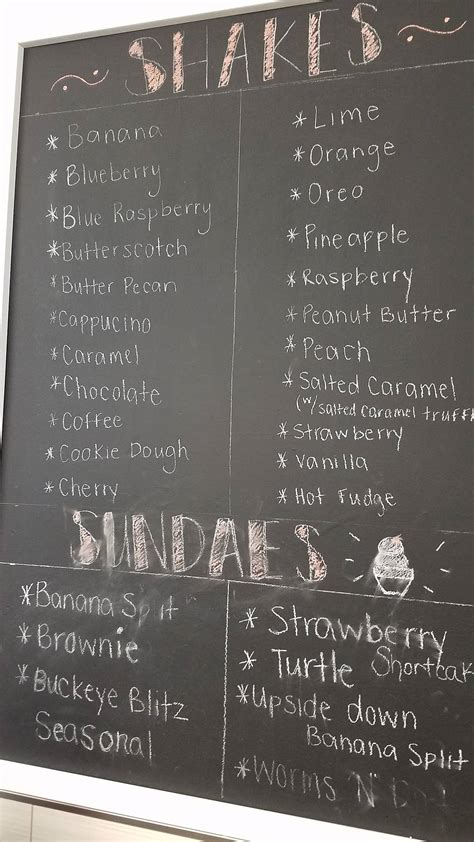 SHAKES
* Banana
* Blueberry
* Blue Raspberry
* Butterscotch
* Butter Pecan
* Cappucino
* Caramel
* Chocolate
* Coffee
* Cookie Dough
* Cherry
* Lime
* Orange
* Oreo
* Pineapple
* Raspberry
* Peanut Butter
* Peach
* Salted Caramel
(w/ salted caramel truff
* Strawberry
* Vanilla
* Hot Fudge
SUNDAES
* Banana Split
* Brownie
* Buckeye Blitz
Seasonal
* Strawberry
Shortcak
* Turtle
* Upside down
Banana Split
* Worms N'